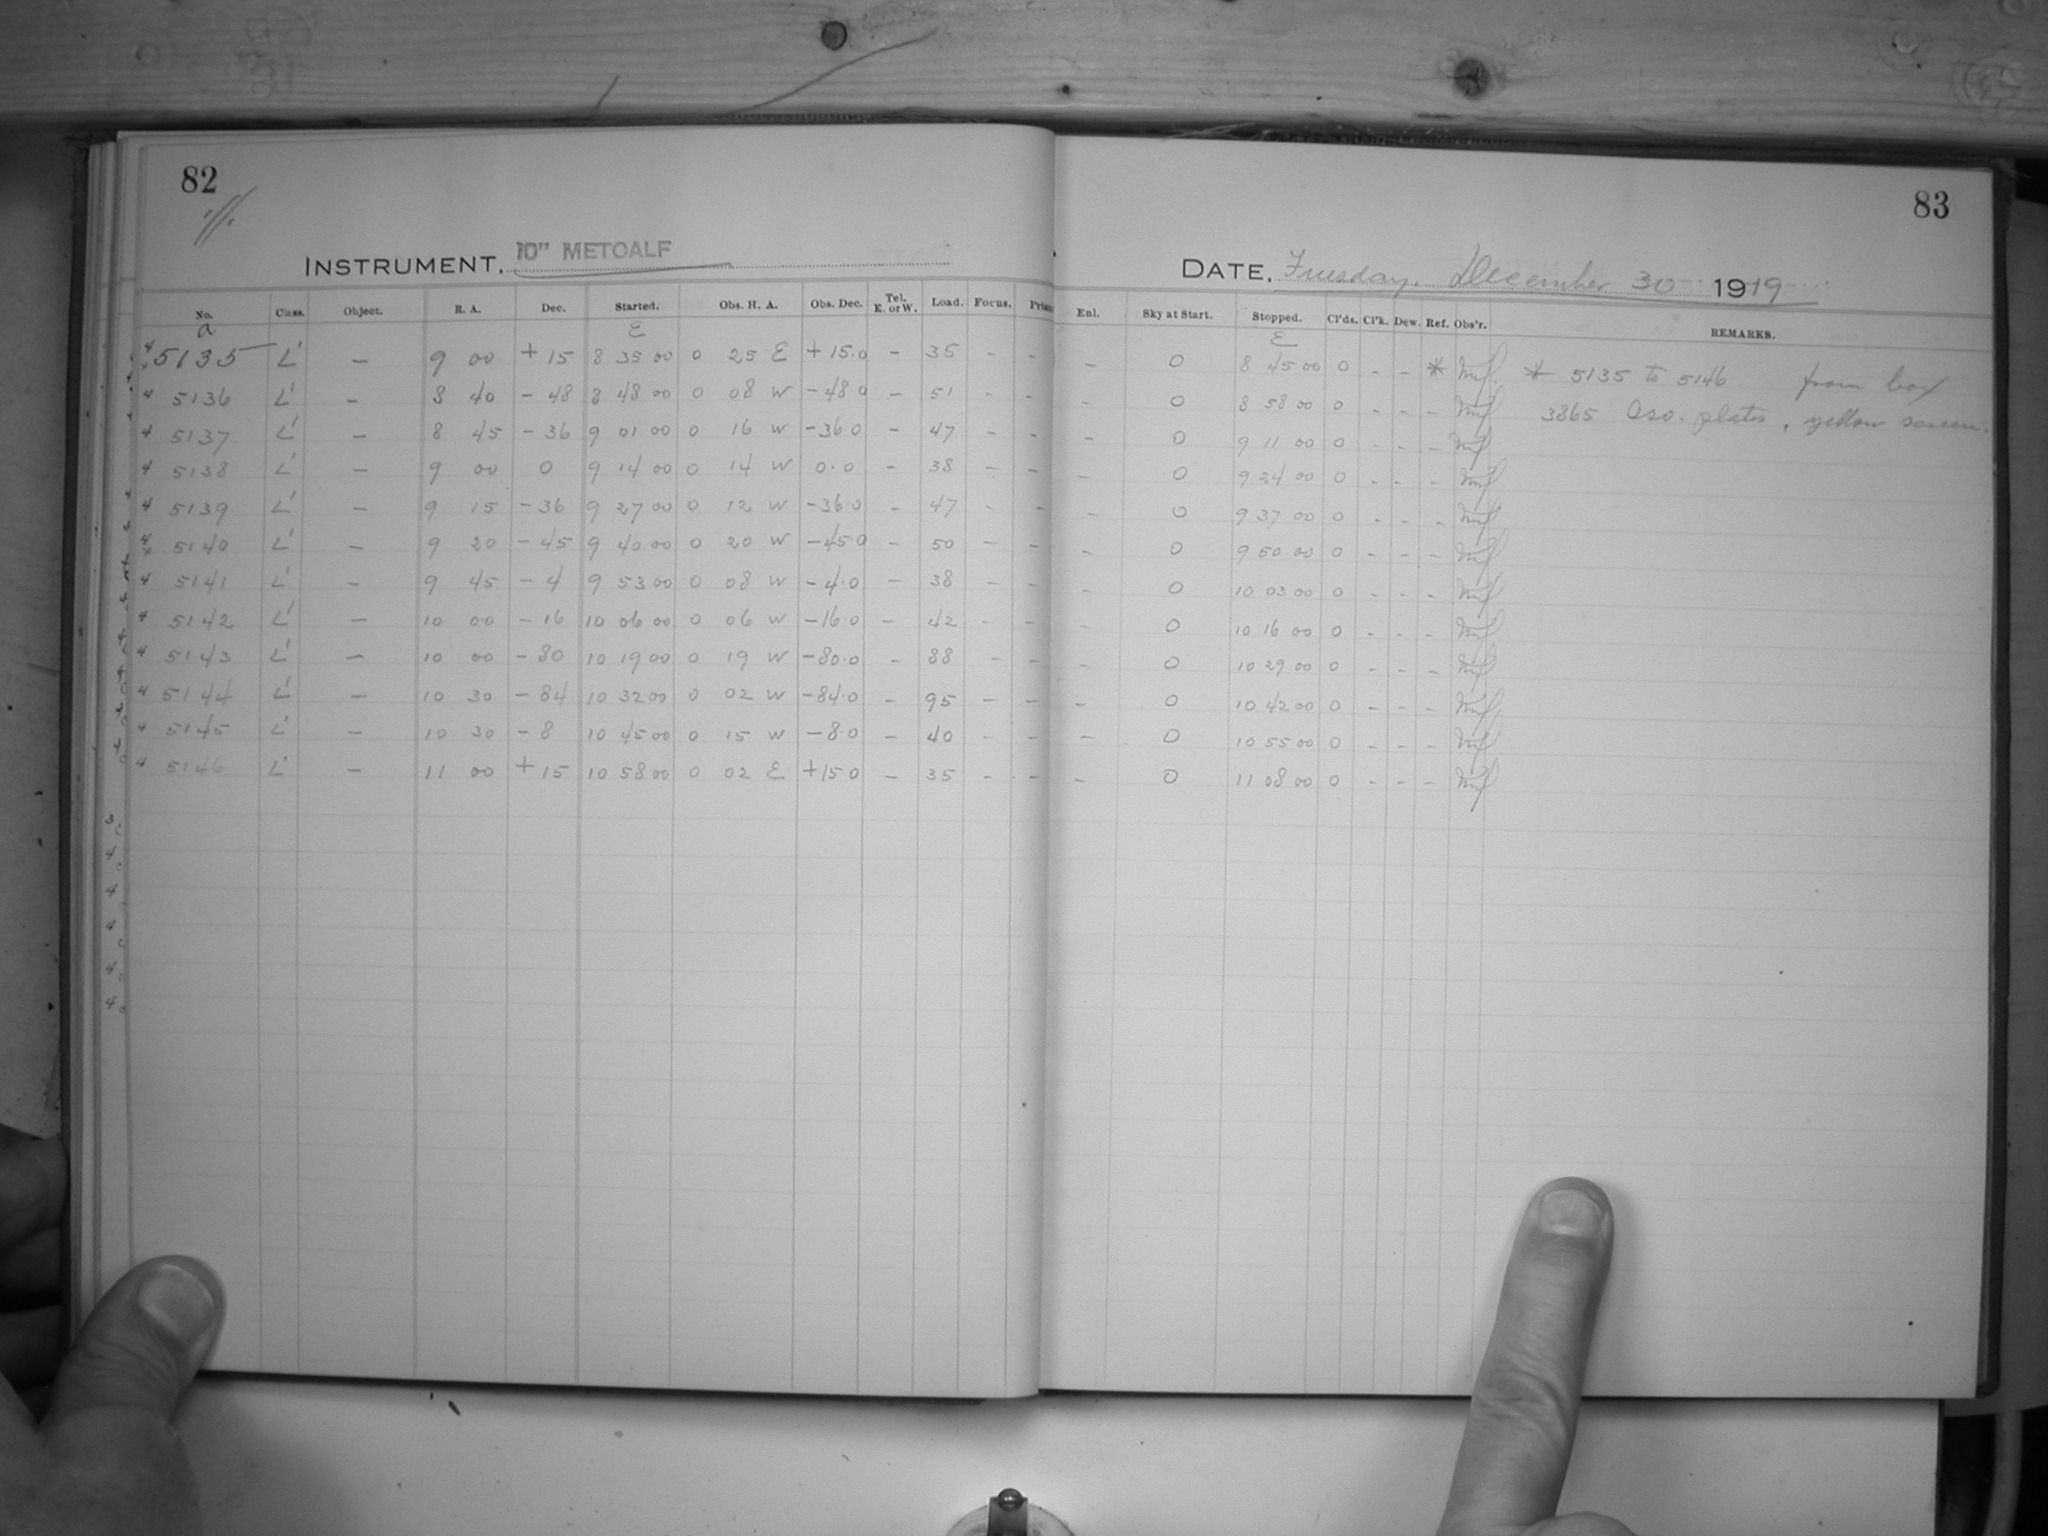 82
83
INSTRUMENT. 10" METCALF
DATE. Tuesday, December 30 1919
No. Class. Object. R. A. Dec. Started. Obs. H. A. Obs. Dec. Tel. E. or W. Load. Focus. Prism Enl. Sky at Start. Stopped. Cl'ds. Cl'k. Dew. Ref. Obs'r. REMARKS.
a E E
5135 L' – 9 00 +15 8 35 00 0 25 E +15.0 – 35 – – – 0 8 45 00 0 – – * * 5135 to 5146 from box
5136 L' – 8 40 –48 8 48 00 0 08 W –48.0 – 51 – – – 0 8 58 00 0 – – – 3865 Iso. plates, yellow screen.
5137 L' – 8 45 –36 9 01 00 0 16 W –36.0 – 47 – – – 0 9 11 00 0 – – –
5138 L' – 9 00 0 9 14 00 0 14 W 0.0 – 38 – – – 0 9 24 00 0 – – –
5139 L' – 9 15 –36 9 27 00 0 12 W –36.0 – 47 – – – 0 9 37 00 0 – – –
5140 L' – 9 20 –45 9 40 00 0 20 W –45.0 – 50 – – – 0 9 50 00 0 – – –
5141 L' – 9 45 –4 9 53 00 0 08 W –4.0 – 38 – – – 0 10 03 00 0 – – –
5142 L' – 10 00 –16 10 06 00 0 06 W –16.0 – 42 – – – 0 10 16 00 0 – – –
5143 L' – 10 00 –80 10 19 00 0 19 W –80.0 – 88 – – – 0 10 29 00 0 – – –
5144 L' – 10 30 –84 10 32 00 0 02 W –84.0 – 95 – – – 0 10 42 00 0 – – –
5145 L' – 10 30 –8 10 45 00 0 15 W –8.0 – 40 – – – 0 10 55 00 0 – – –
5146 L' – 11 00 +15 10 58 00 0 02 E +15.0 – 35 – – – 0 11 08 00 0 – – –